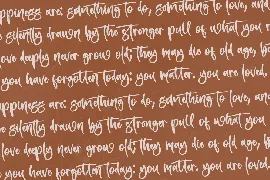 appiness are: something to do, something to love, and
e silently drawn by the stronger pull of what you
love deeply never grow old; they may die of old age, b
you have forgotten today: you matter. you are loved.
appiness are: something to do, something to love, and
e silently drawn by the stronger pull of what you
love deeply never grow old; they may die of old age, bu
you have forgotten today: you matter. you are loved.